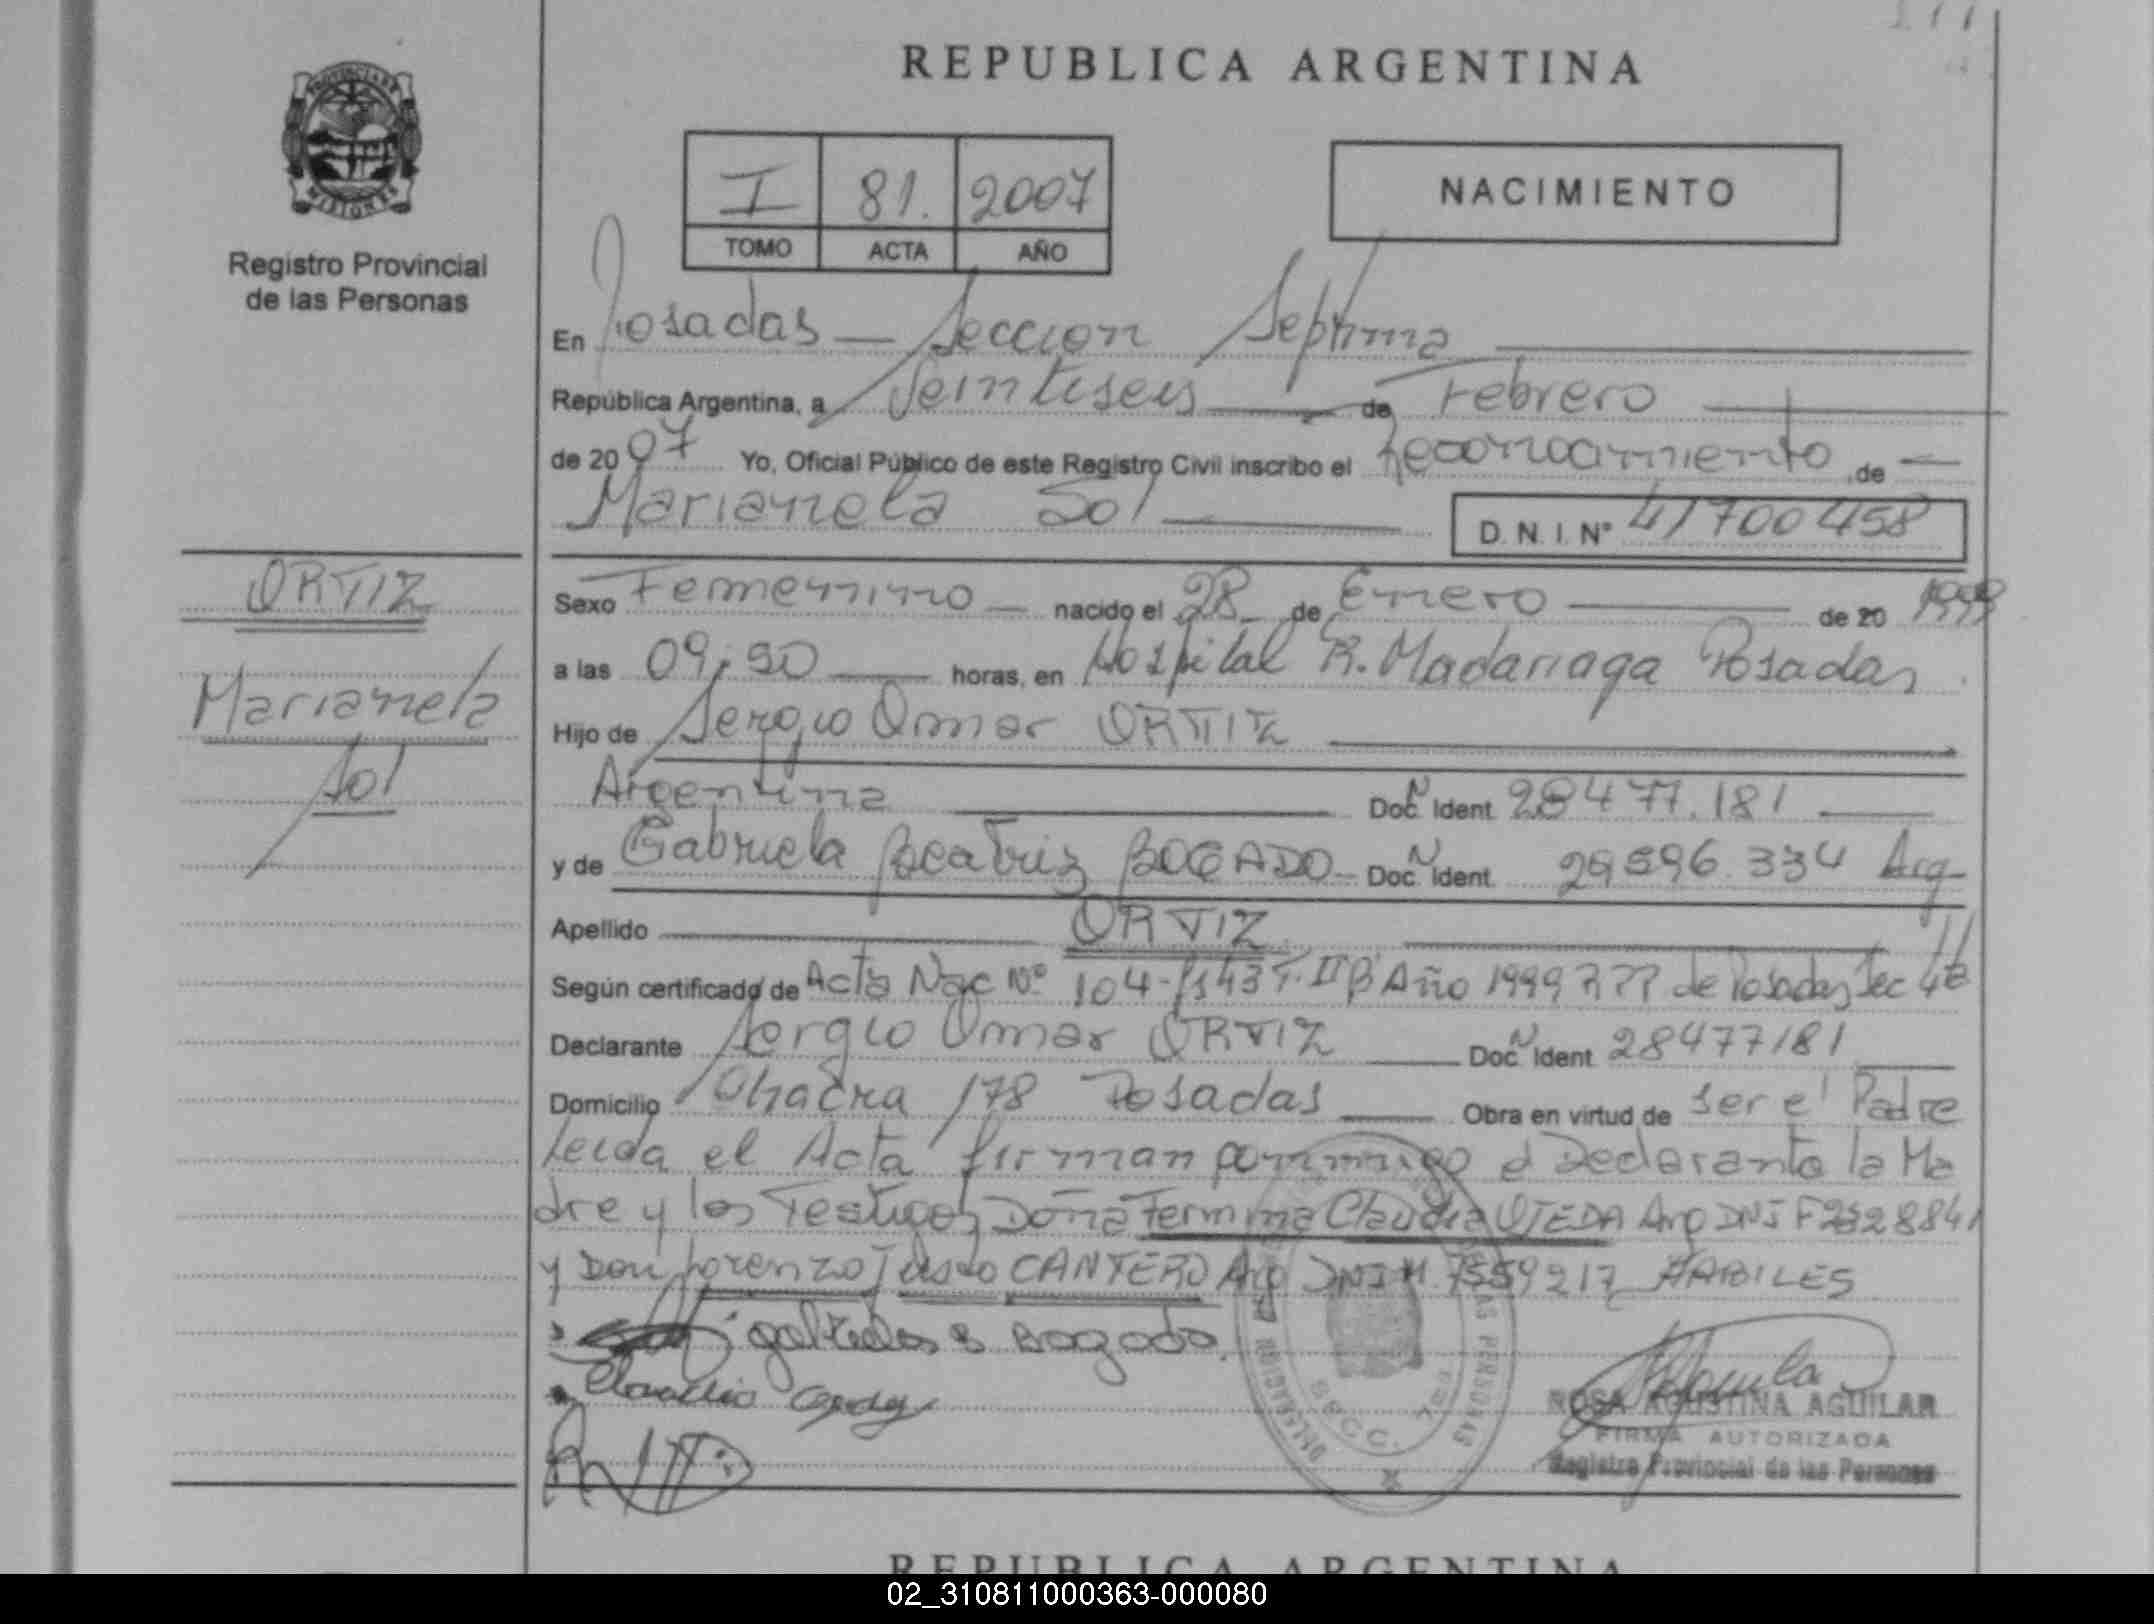 REPUBLICA ARGENTINA
PROVINCIA DE
MISIONES
Registro Provincial
de las Personas
I 81. 2007
TOMO ACTA AÑO
NACIMIENTO
En Posadas — Seccion Septima
República Argentina, a Veintiseis de Febrero
de 2007 Yo, Oficial Público de este Registro Civil inscribo el Reconocimiento de
Marianela Sol D. N. I. N° 41700458
ORTIZ
Marianela
Sol
Sexo Femenino nacido el 28 de Enero de 20 1999
a las 09,50 horas, en Hospital R. Madariaga Posadas
Hijo de Sergio Omar ORTIZ
Argentina Doc. N Ident. 28477.181
y de Gabriela Beatriz BOGADO Doc. N Ident. 29596.334 Arg
Apellido ORTIZ
Según certificado de Acta Nac Nº 104-f143 T. II B Año 1999 de Posadas Sec 4ta
Declarante Sergio Omar ORTIZ Doc. N Ident. 28477181
Domicilio Chacra 178 Posadas Obra en virtud de ser el Padre
Leida el Acta firman por migo el Declarante la Ma
dre y los Testigos Doña Fermina Claudia OJEDA Arg DNI F
y Don Lorenzo CANTERO Arg DNI M 7559217 HABILES
Bogado
SECC. 7
ROSA AGUSTINA AGUILAR
FIRMA AUTORIZADA
Registro Provincial de las Personas
REPUBLICA ARGENTINA
02_310811000363-000080